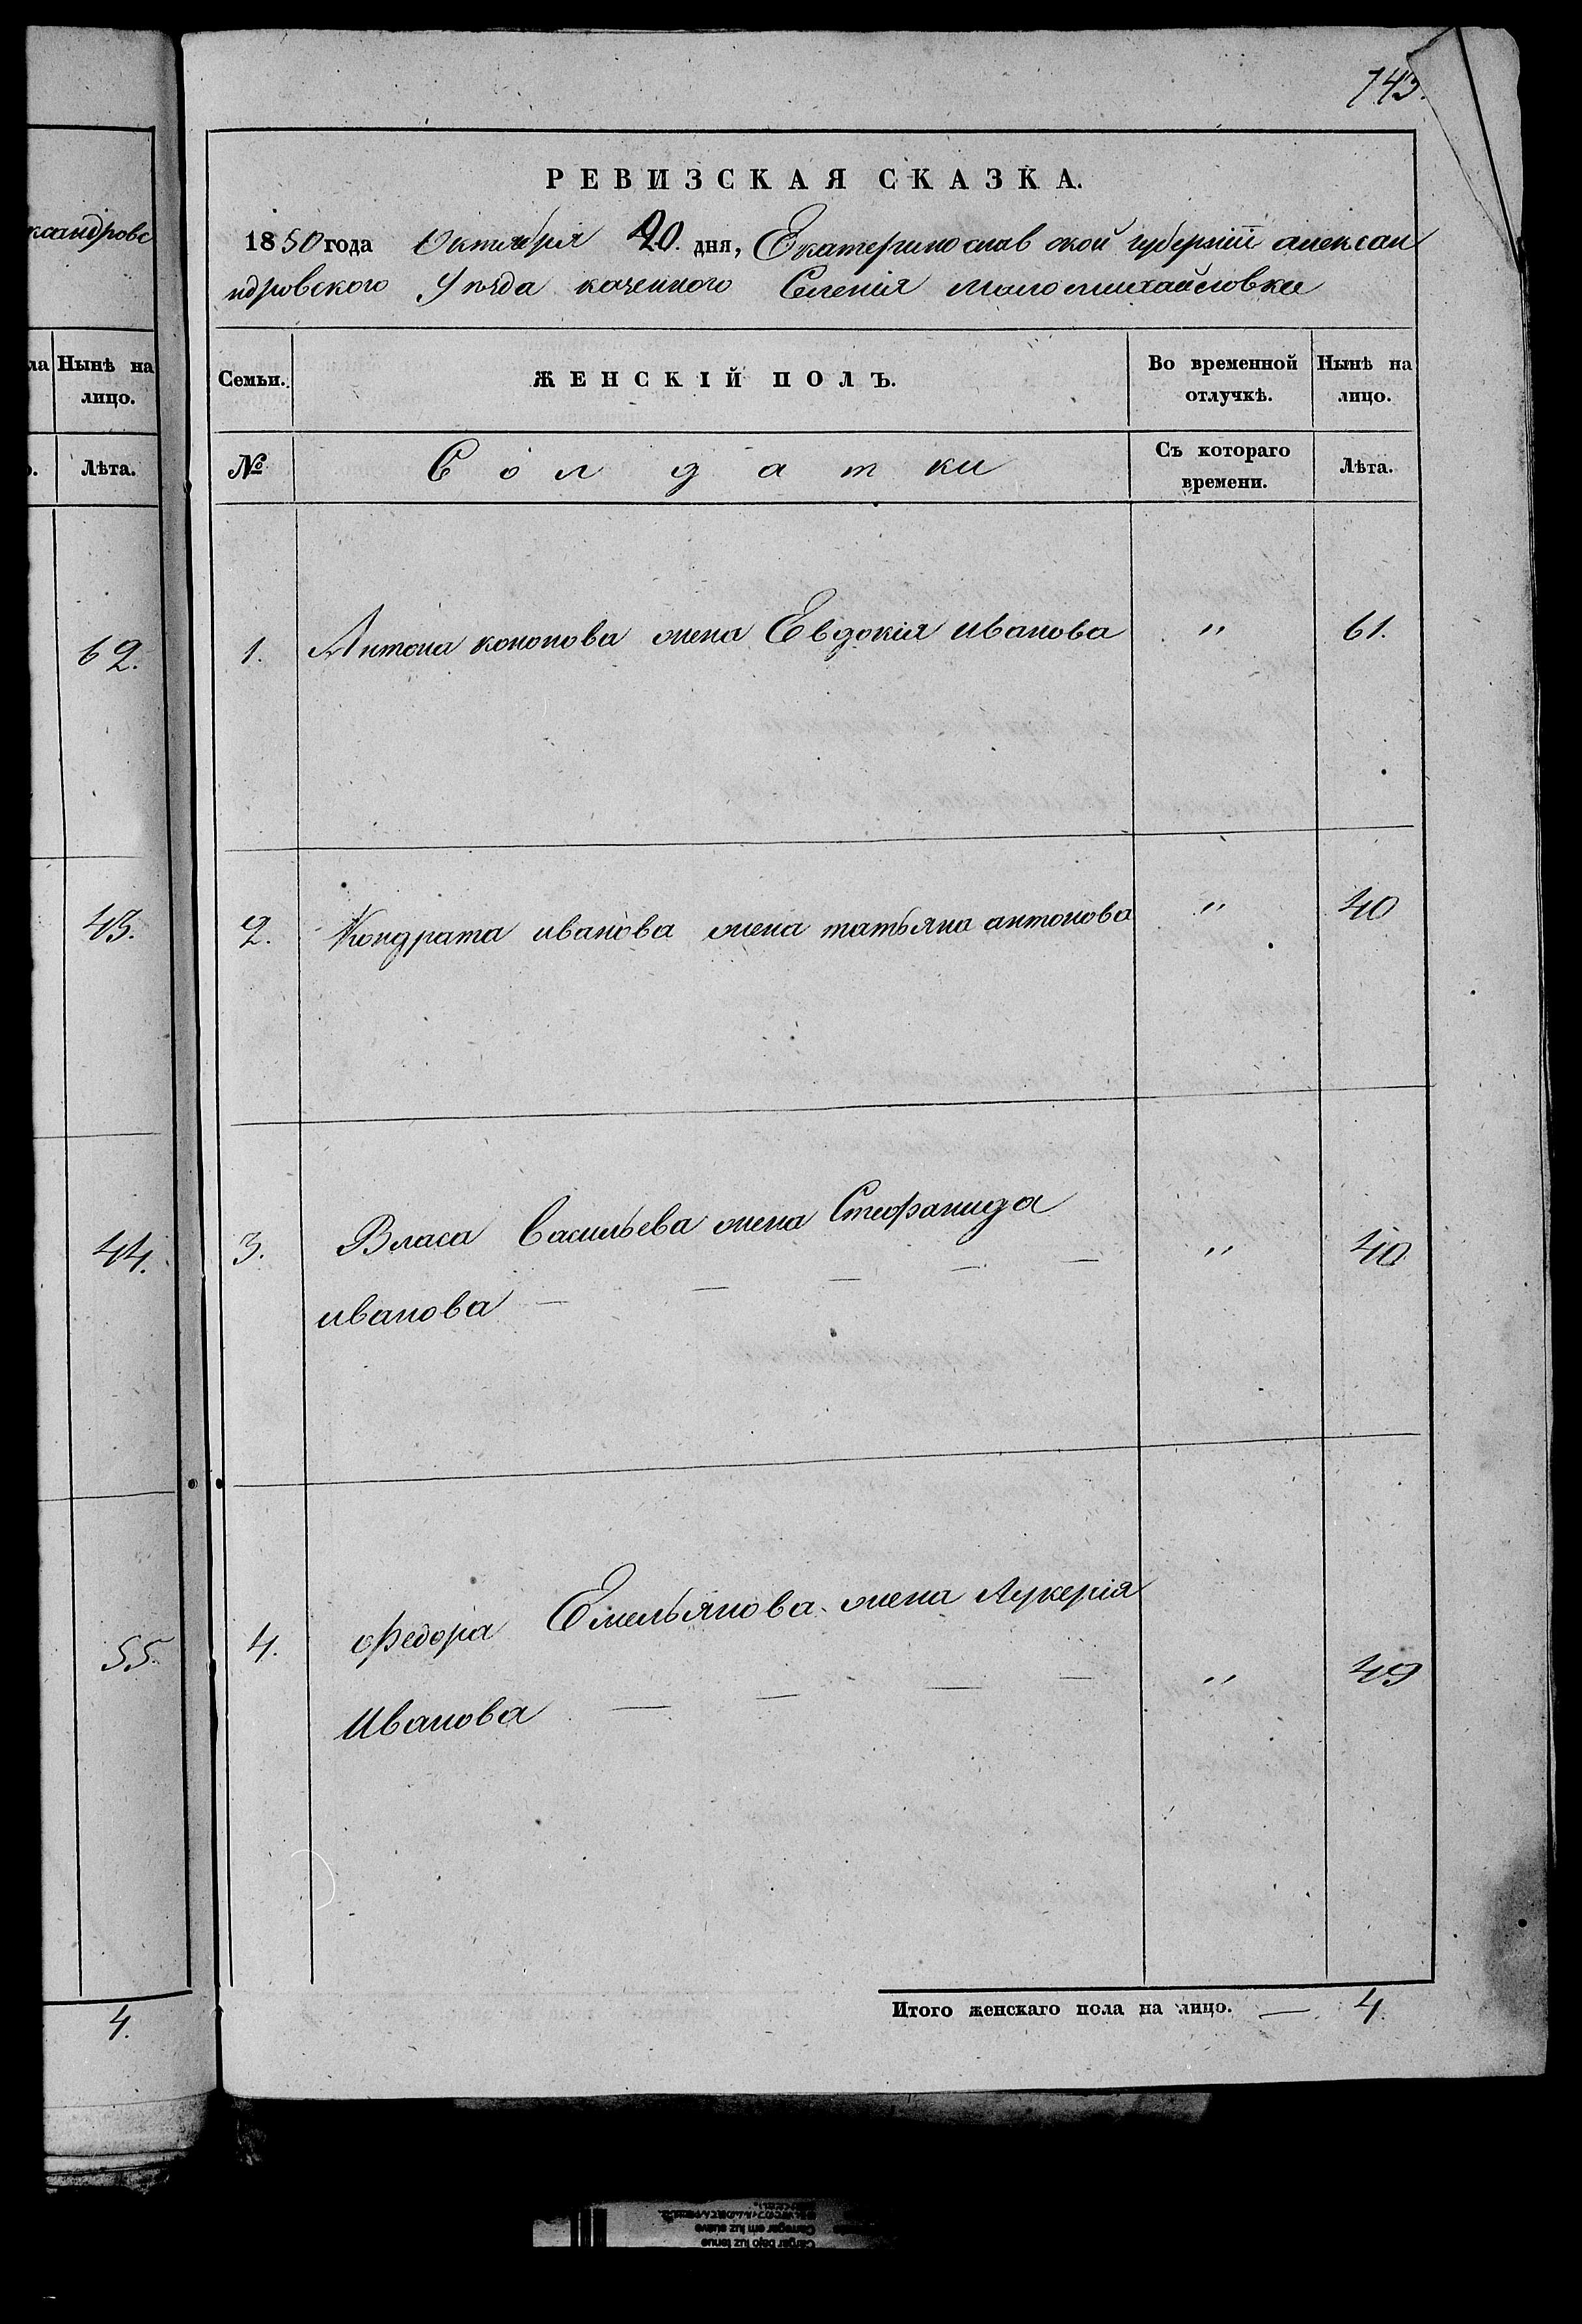 743.
РЕВИЗСКАЯ СКАЗКА.
1850 года Октября 20. дня, Екатеринославской губерніи алексан
ндровского Уезда казенного Селенія маломихайловки
ксандровс
ла Нынѣ на лицо.
Семьи. ЖЕНСКІЙ ПОЛЪ. Во временной отлучкѣ. Нынѣ на лицо.
Лѣта.
№ Солдатки Съ котораго времени. Лѣта.
62.
1. Антона кононова жена Евдокія иванова " 61.
43.
2. Кондрата иванова жена татьяна антонова " 40
44.
3. Власа Васильева жена Стефанида
иванова — — — — — " 40
55.
4. Федора Емельянова жена Лукерія
Иванова — — — — " 49
4.
Итого женскаго пола на лицо. — 4.